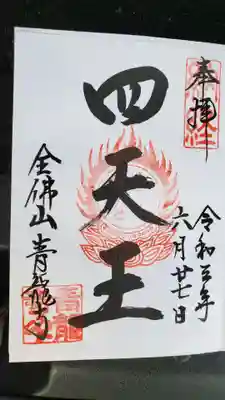 奉拝
令和三年
六月廿七日
四天王
金佛山青龍寺